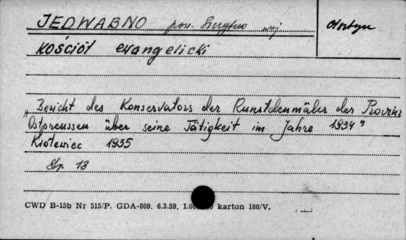 JEDWABNO pow. Szczytno woj Olsztyn
KOŚCIÓŁ evangelicki
"Bericht des Konservators der Kunstdenmäler der Provinz
Ostpreussen über seine Tätigkeit im Jahre 1934"
Królewiec 1935
Str. 18
CWD B-15b Nr 515/P. GDA-809. 6.3.59. karton 180/V.